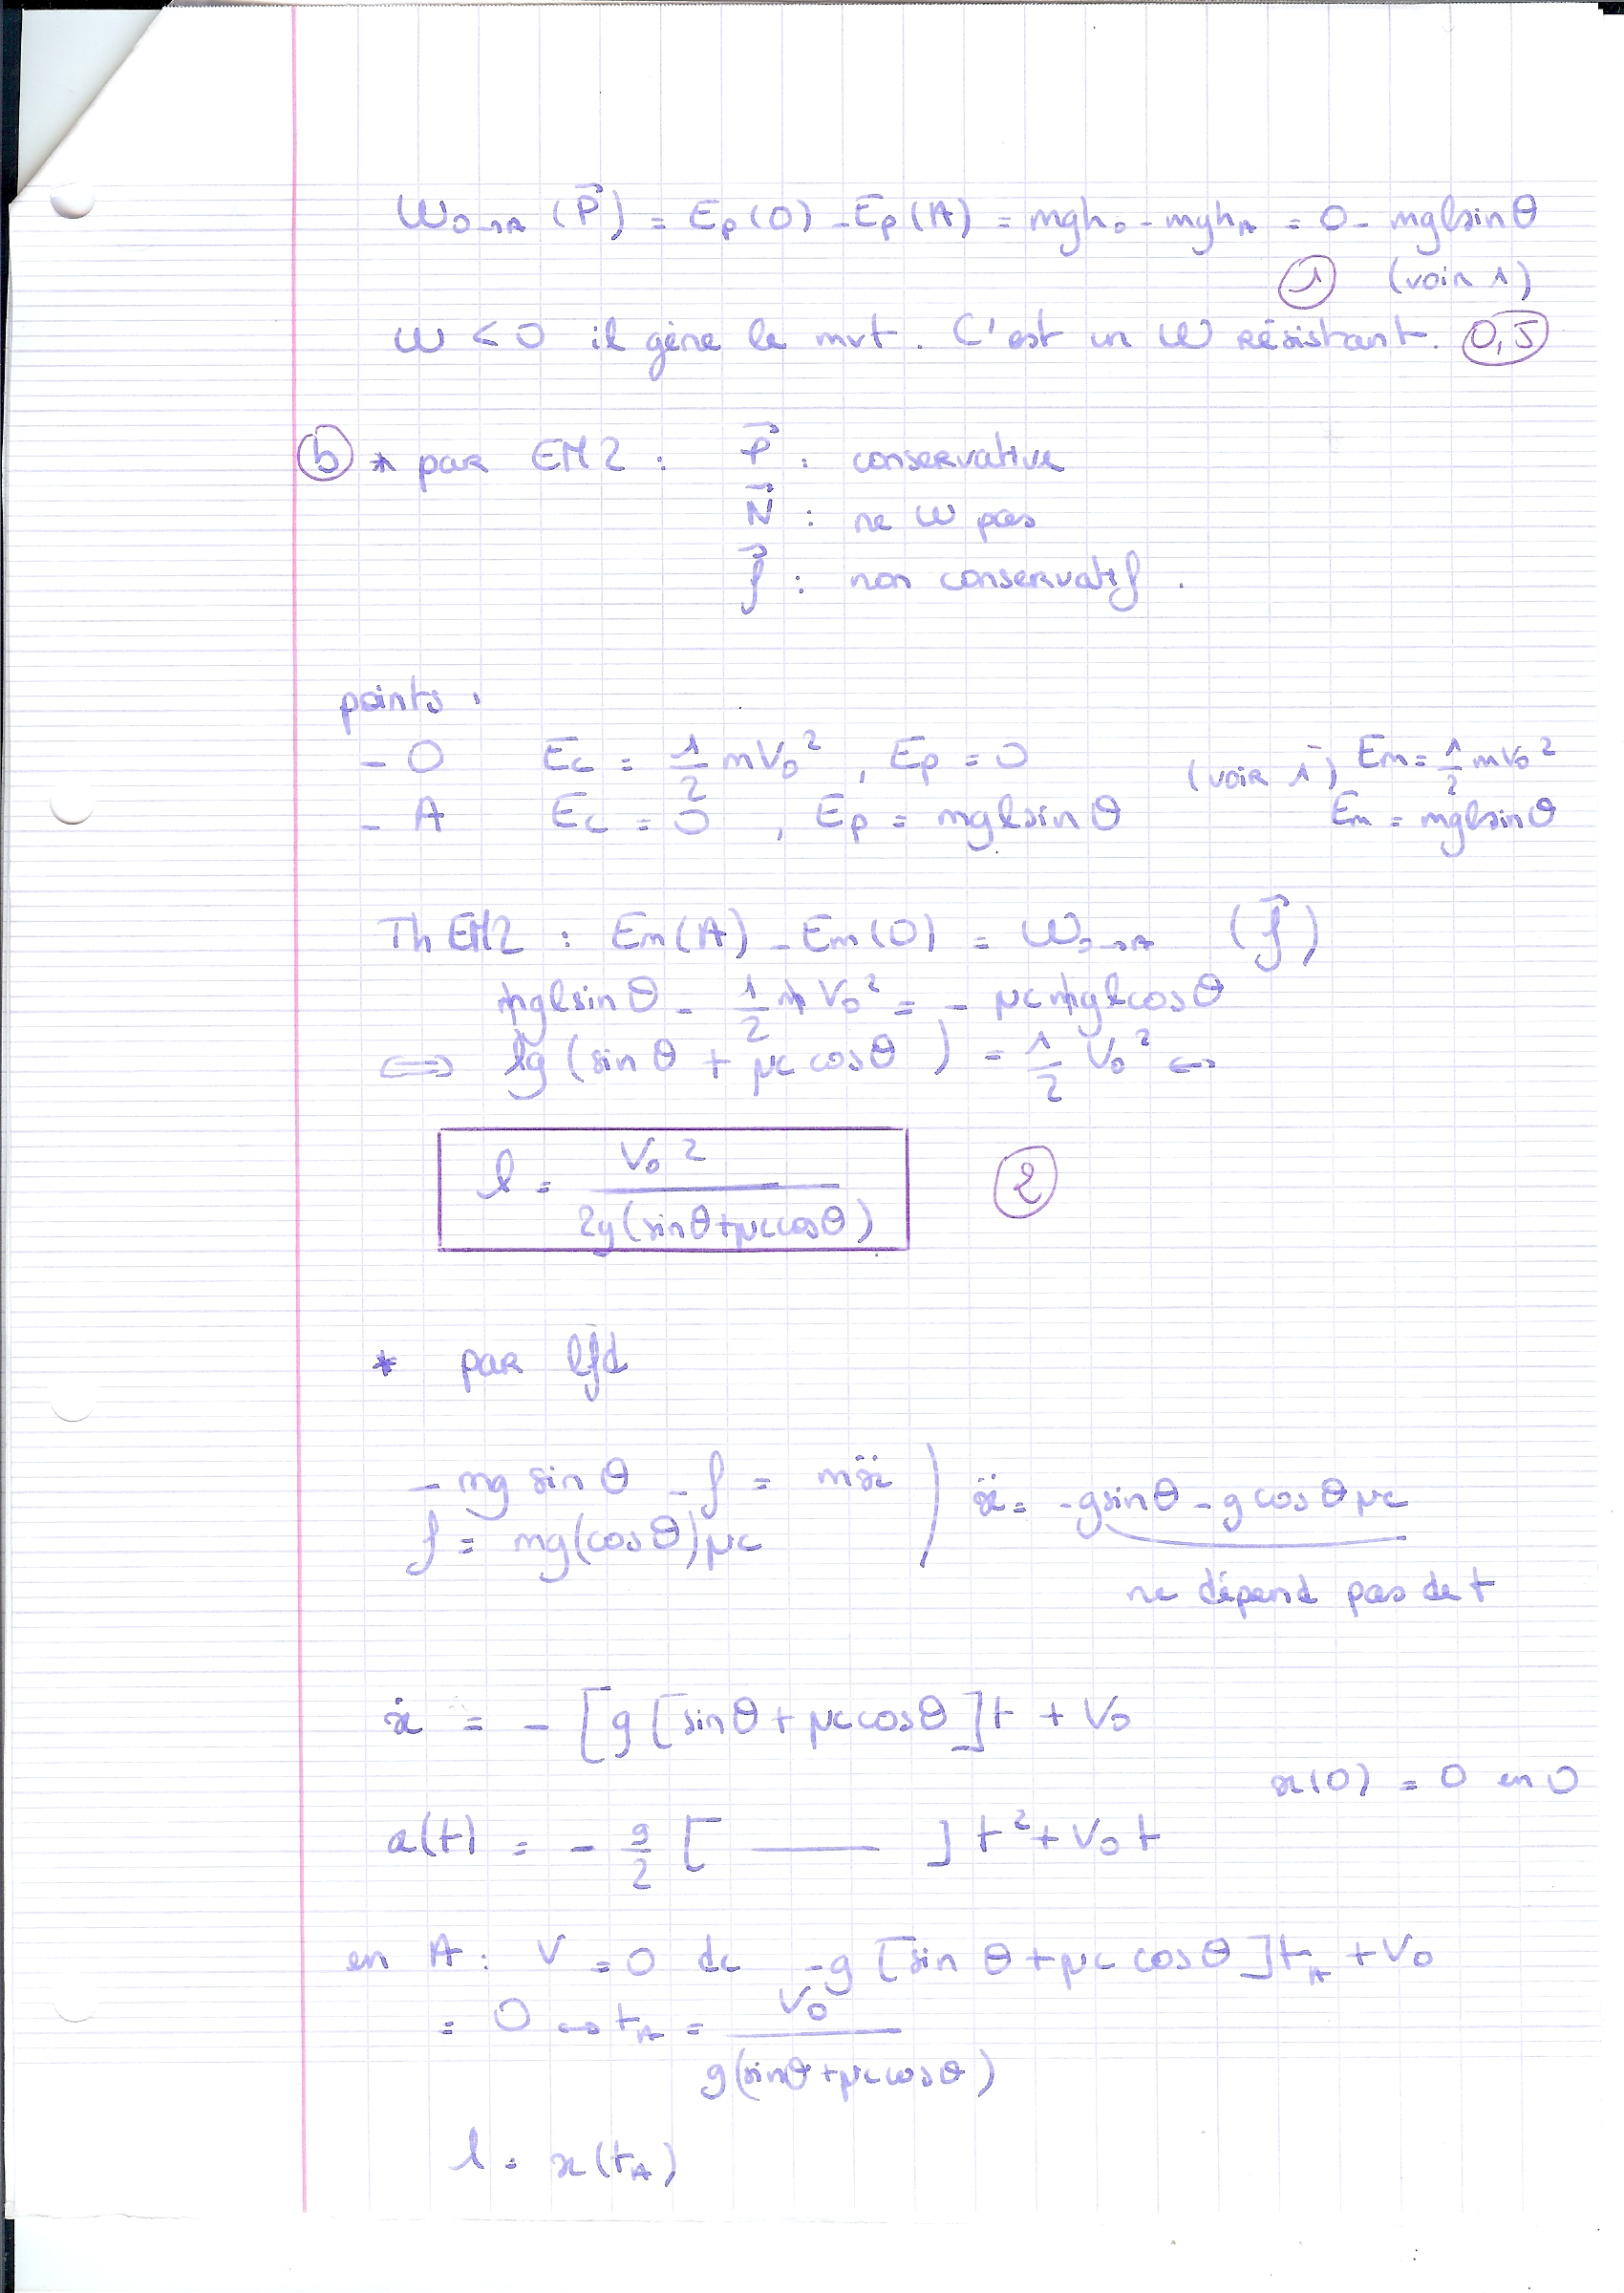 W₀→A (P⃗) = Ep(O) - Ep(A) = mgh₀ - mghA = 0 - mglsinθ
① (voir 1)
W < 0 il gène le mvt. C'est un W résistant. 0,5
ⓑ * par EM2 : P⃗ : conservative
N⃗ : ne W pas
f⃗ : non conservatif.
points :
- O Ec = 1/2 mV₀² , Ep = 0 (voir 1) Em = 1/2 mV₀²
- A Ec = 0 , Ep = mglsinθ Em = mglsinθ
Th EM2 : Em(A) - Em(O) = W₀→A (f⃗)
mglsinθ - 1/2 mV₀² = - μc mglcosθ
⇔ lg (sinθ + μc cosθ) = 1/2 V₀² ⇔
l = V₀² / 2g(sinθ+μc cosθ) ②
* par lfd
- mg sinθ - f = mẍ ) ẍ = -gsinθ - g cosθ μc
f = mg(cosθ)μc
ne dépend pas de t
ẋ = - [g [sinθ + μc cosθ]t + V₀
x(0) = 0 en O
x(t) = - g/2 [ —— ] t² + V₀ t
en A : V = 0 dc -g [sin θ + μc cosθ]tA + V₀
= 0 ⇔ tA = V₀ / g(sinθ+μc cosθ)
l = x(tA)